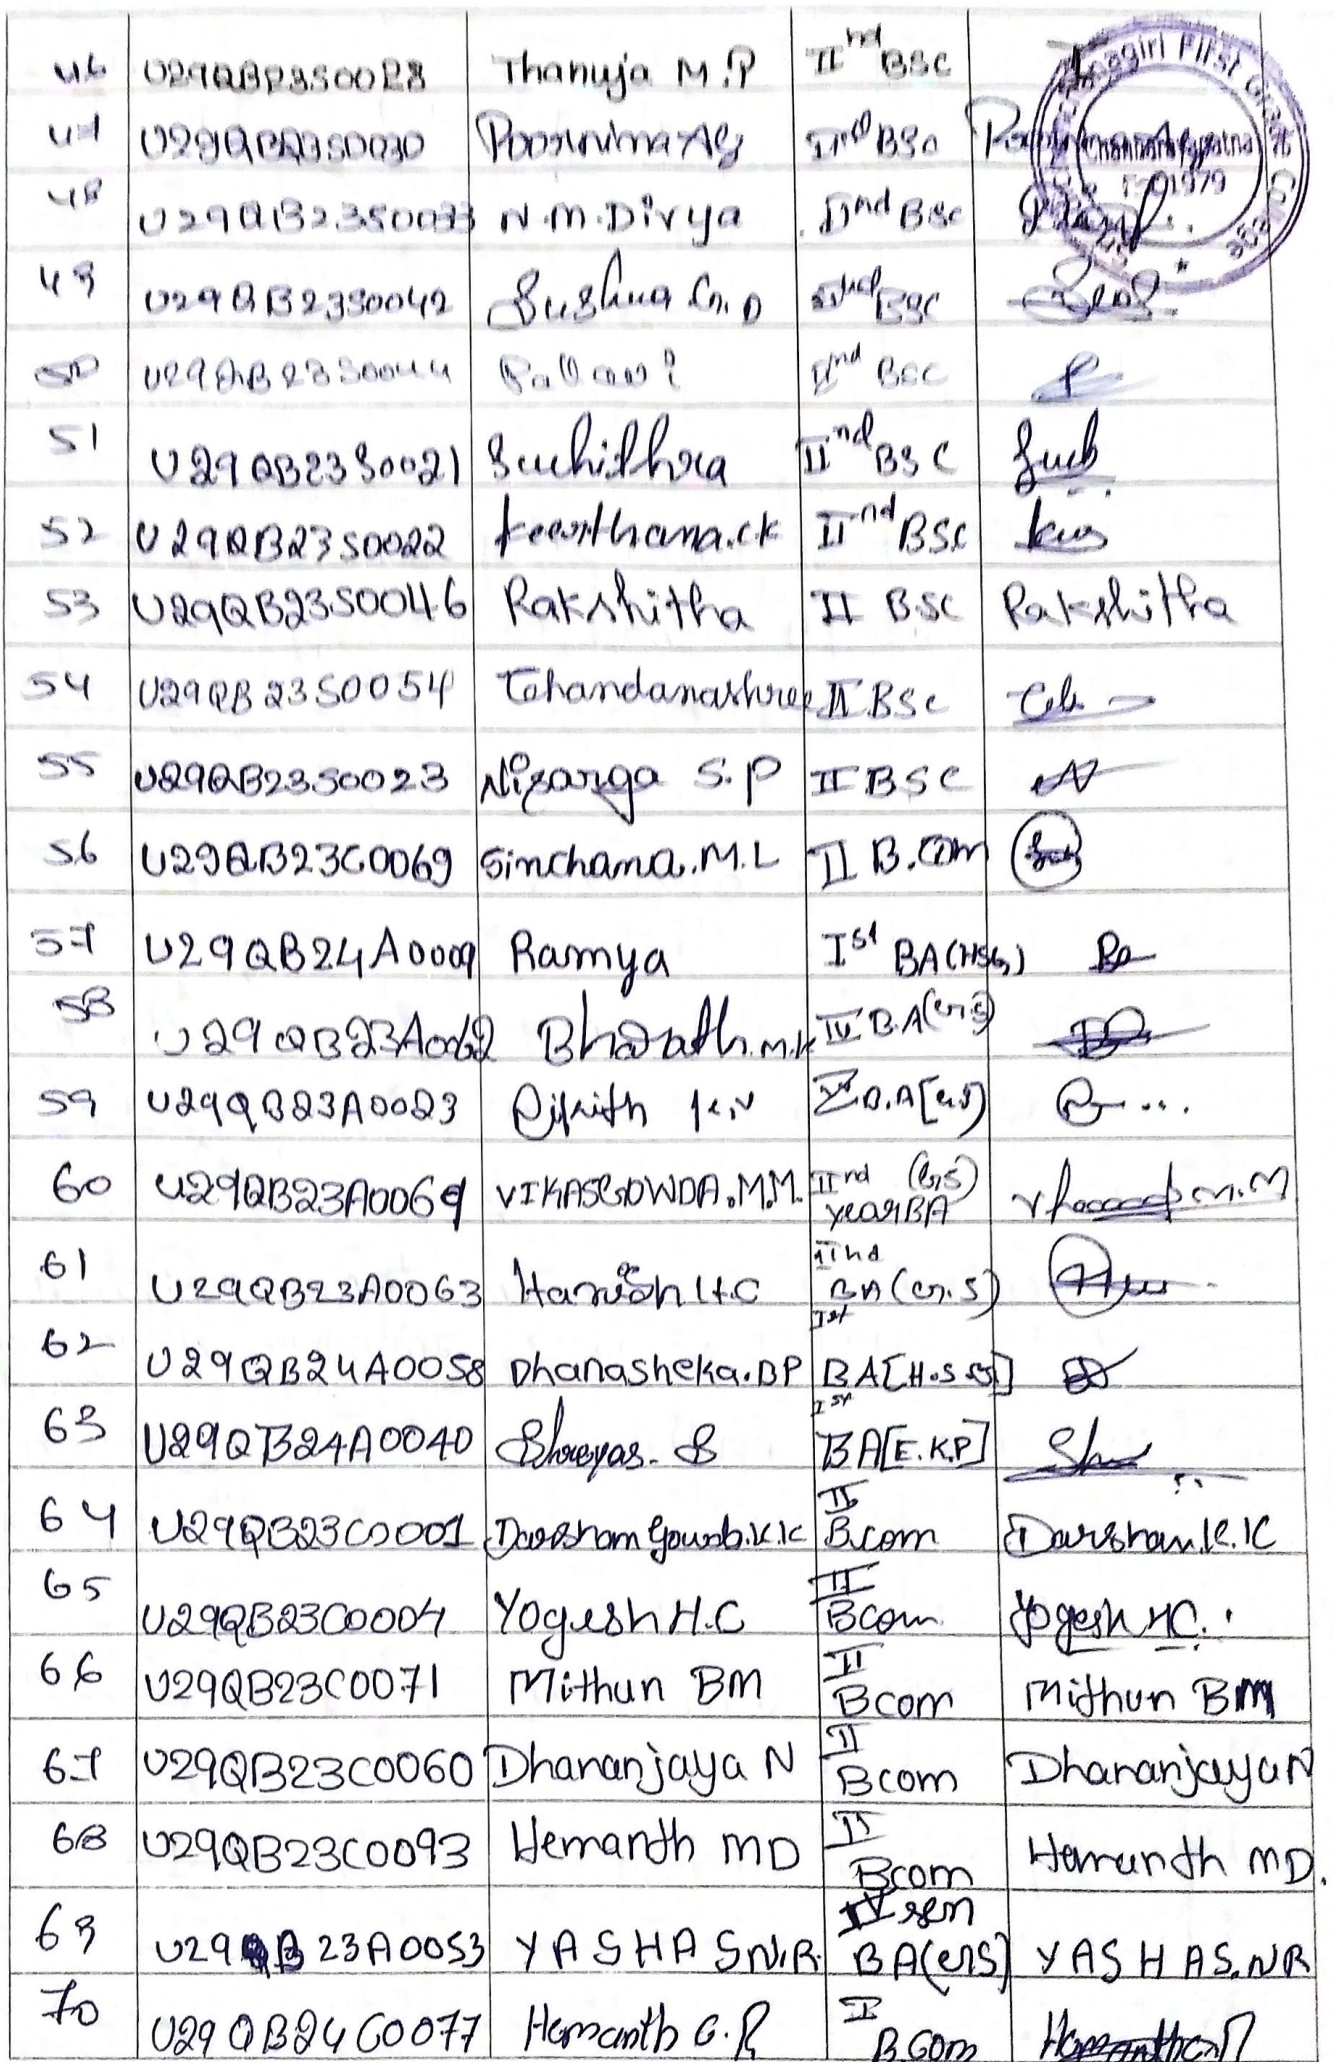 46 U29QB23S0028 Thanuja M.P IInd BSC
47 U29QB23S0030 Poornima AG IInd BSc
48 U29QB23S0033 N.M.Divya IInd BSc
49 U29QB23S0042 IInd BSC
50 U29QB23S0044 Pallavi IInd BSC
51 U29QB23S0021 Suchithra IInd BSC Such
52 U29QB23S0022 Keerthana.CK IInd BSC
53 U29QB23S0046 Rakshitha II BSC Rakshitha
54 U29QB23S0054 Chandanashree II BSc
55 U29QB23S0023 Nisarga S.P II BSC
56 U29QB23C0069 Sinchana.M.L II B.Com
57 U29QB24A0009 Ramya Ist
58 U29QB23A0062 Bharath.M.K IV B.A
59 U29QB23A0023 K.V B.A
60 U29QB23A0069 VIKASGOWDA.M.M. IInd year BA M.M
61 U29QB23A0063 Harish H.C IInd BA
62 U29QB24A0058 Dhanasheka.BP Ist
63 U29QB24A0040 Shreyas. S Ist BA[E.K.P]
64 U29QB23C0001 Darshan Gowda.K.K II B.com Darshan.K.K
65 U29QB23C0004 Yogesh H.C II Bcom Yogesh HC.
66 U29QB23C0071 Mithun BM II Bcom Mithun BM
67 U29QB23C0060 Dhananjaya N II Bcom Dhananjaya N
68 U29QB23C0093 Hemanth MD II Bcom Hemanth MD.
69 U29QB23A0053 YASHAS N.R. IV sem BA YASHAS.NR
70 U29QB24C0077 Hemanth G.R I B.Com
First Grade College
Channarayapatna
1979